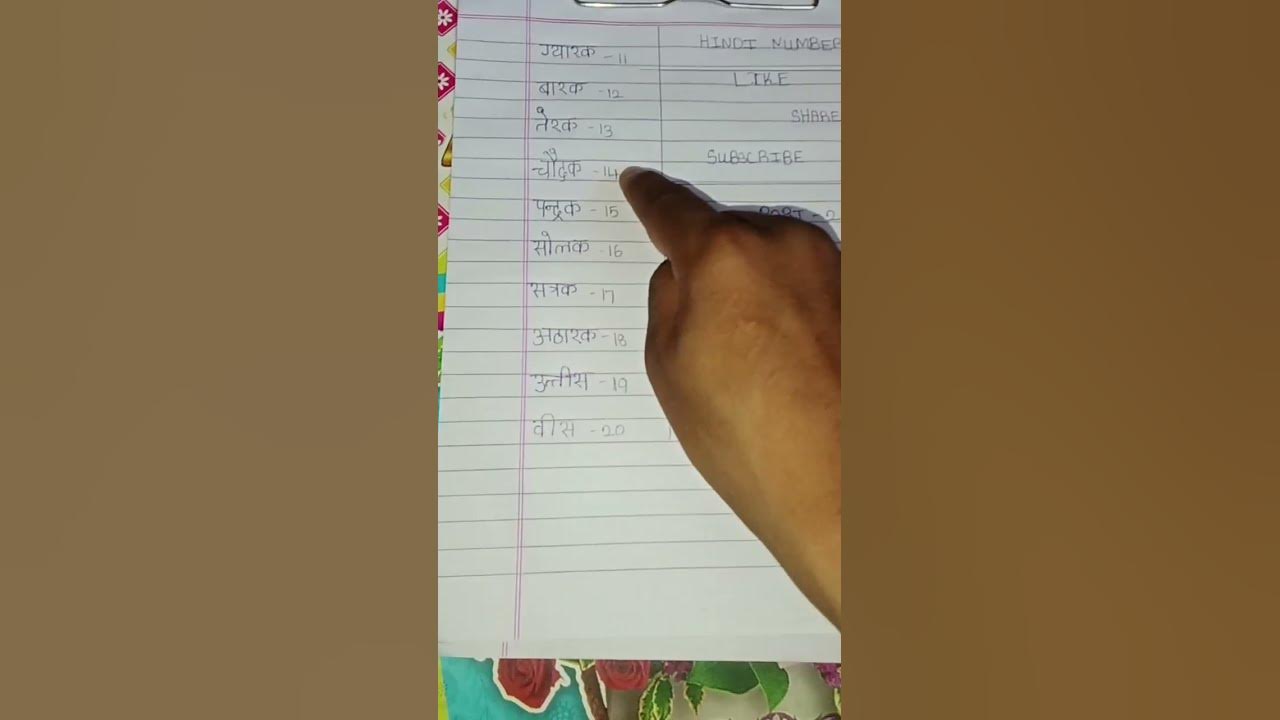 ग्यारक -11
बारक -12
तेरक -13
चौद्रक -14
पन्द्रक -15
सोलक -16
सत्रक -17
अठारक -18
उन्तीस -19
वीस -20
HINDI NUMBER
LIKE
SHARE
SUBSCRIBE